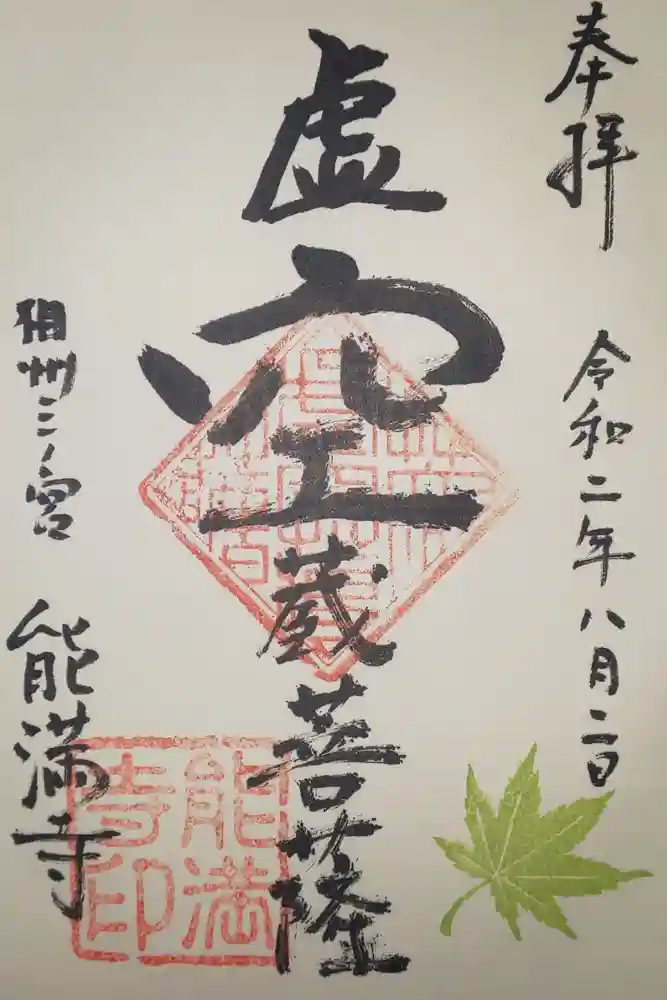 奉拝
令和二年八月二日
虚空蔵菩薩
相州三ノ宮
能満寺
能満寺印